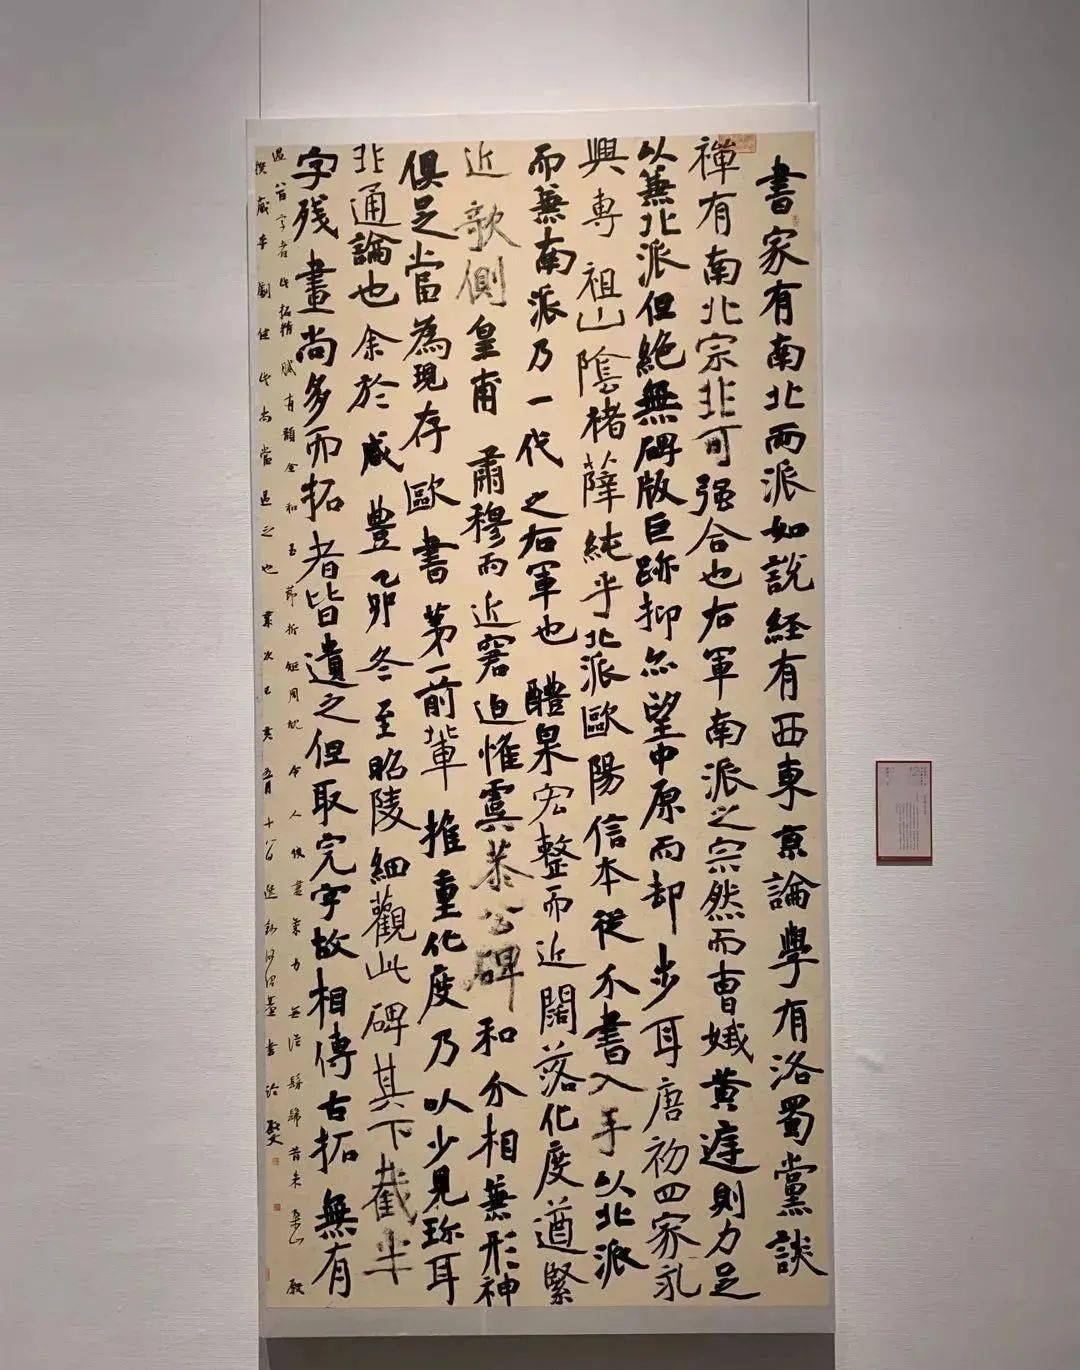 書家有南北兩派如說經有西東京論學有洛蜀黨談
禪有南北宗非可强合也右軍南派之宗然而曹娥黃庭則力足
以兼北派但絕無碑版巨跡抑亦望中原而却步耳唐初四家永
興專祖山陰褚薛純乎北派歐陽信本從分書入手以北派
而兼南派乃一代之右軍也醴泉宏整而近闊落化度遒緊
近欹側皇甫肅穆而近窘迫惟虞恭公碑和介相兼形神
俱足當為現存歐書第一前輩推重化度乃以少見珍耳
非通論也余於咸豐乙卯冬至昭陵細觀此碑其下截半
字残畫尚多而拓者皆遺之但取完字故相傳古拓無有
過八百字者此拓精腻有玉節折矩周規令人
本劇健此尚當過之也歲次己亥五月十八日何紹基書論